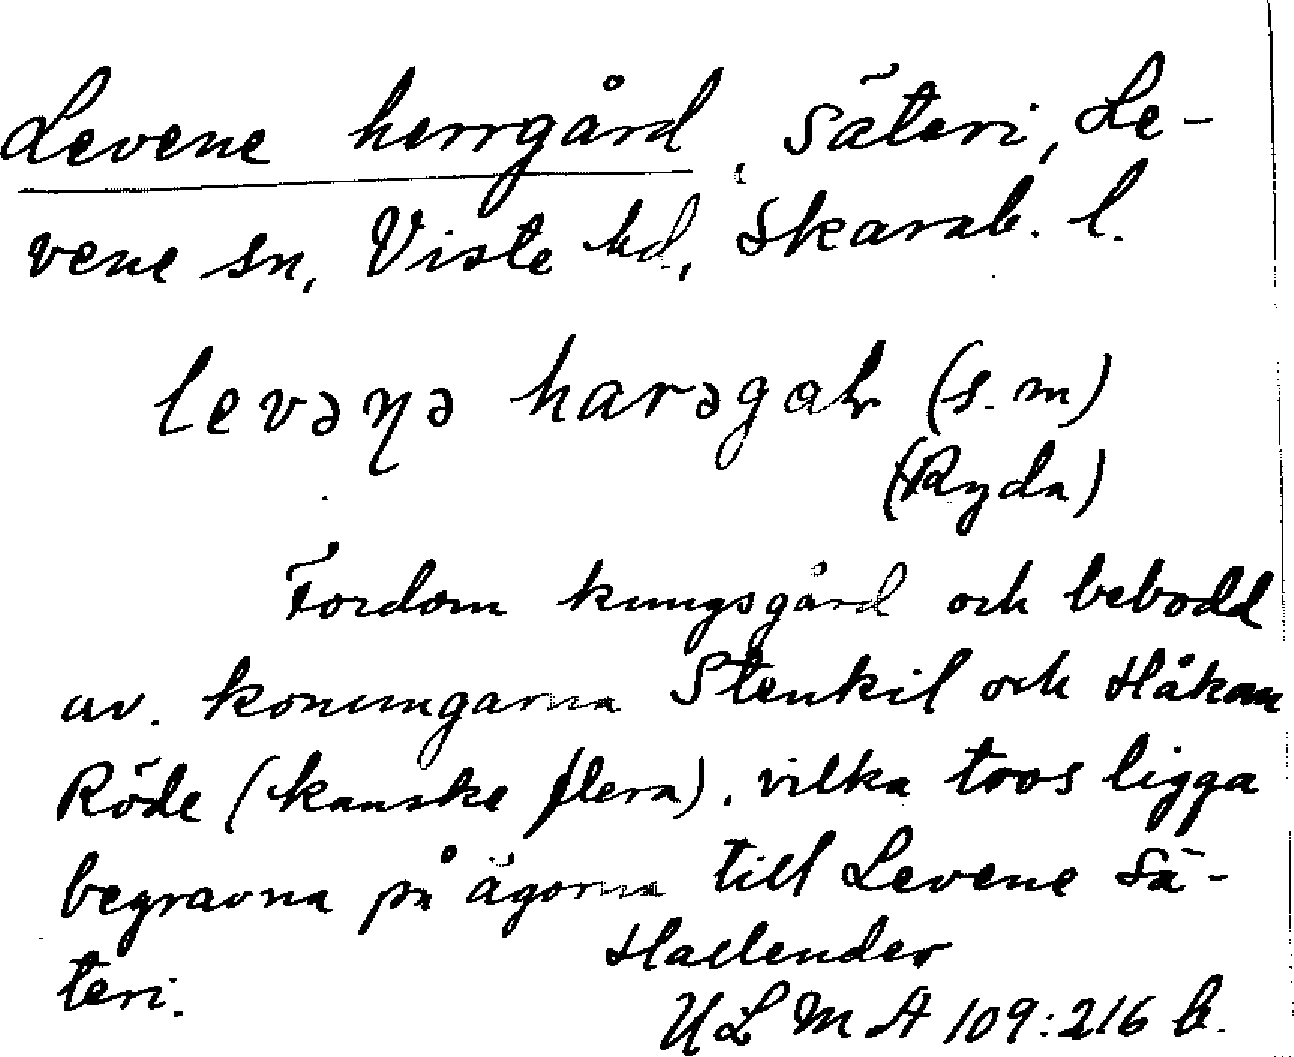 Levene herrgård, Säteri, Le-
vene sn, Viste hd, Skarab. l.
levəŋə harəgaḷ (s.m)
(Ryda)
Fordom kungsgård och bebodd
av konungarna Stenkil och Håkan
Röde (kanske flera), vilka tros ligga
begravna på ägorna till Levene Sä-
teri.
Hallender
ULMA 109:216 b.